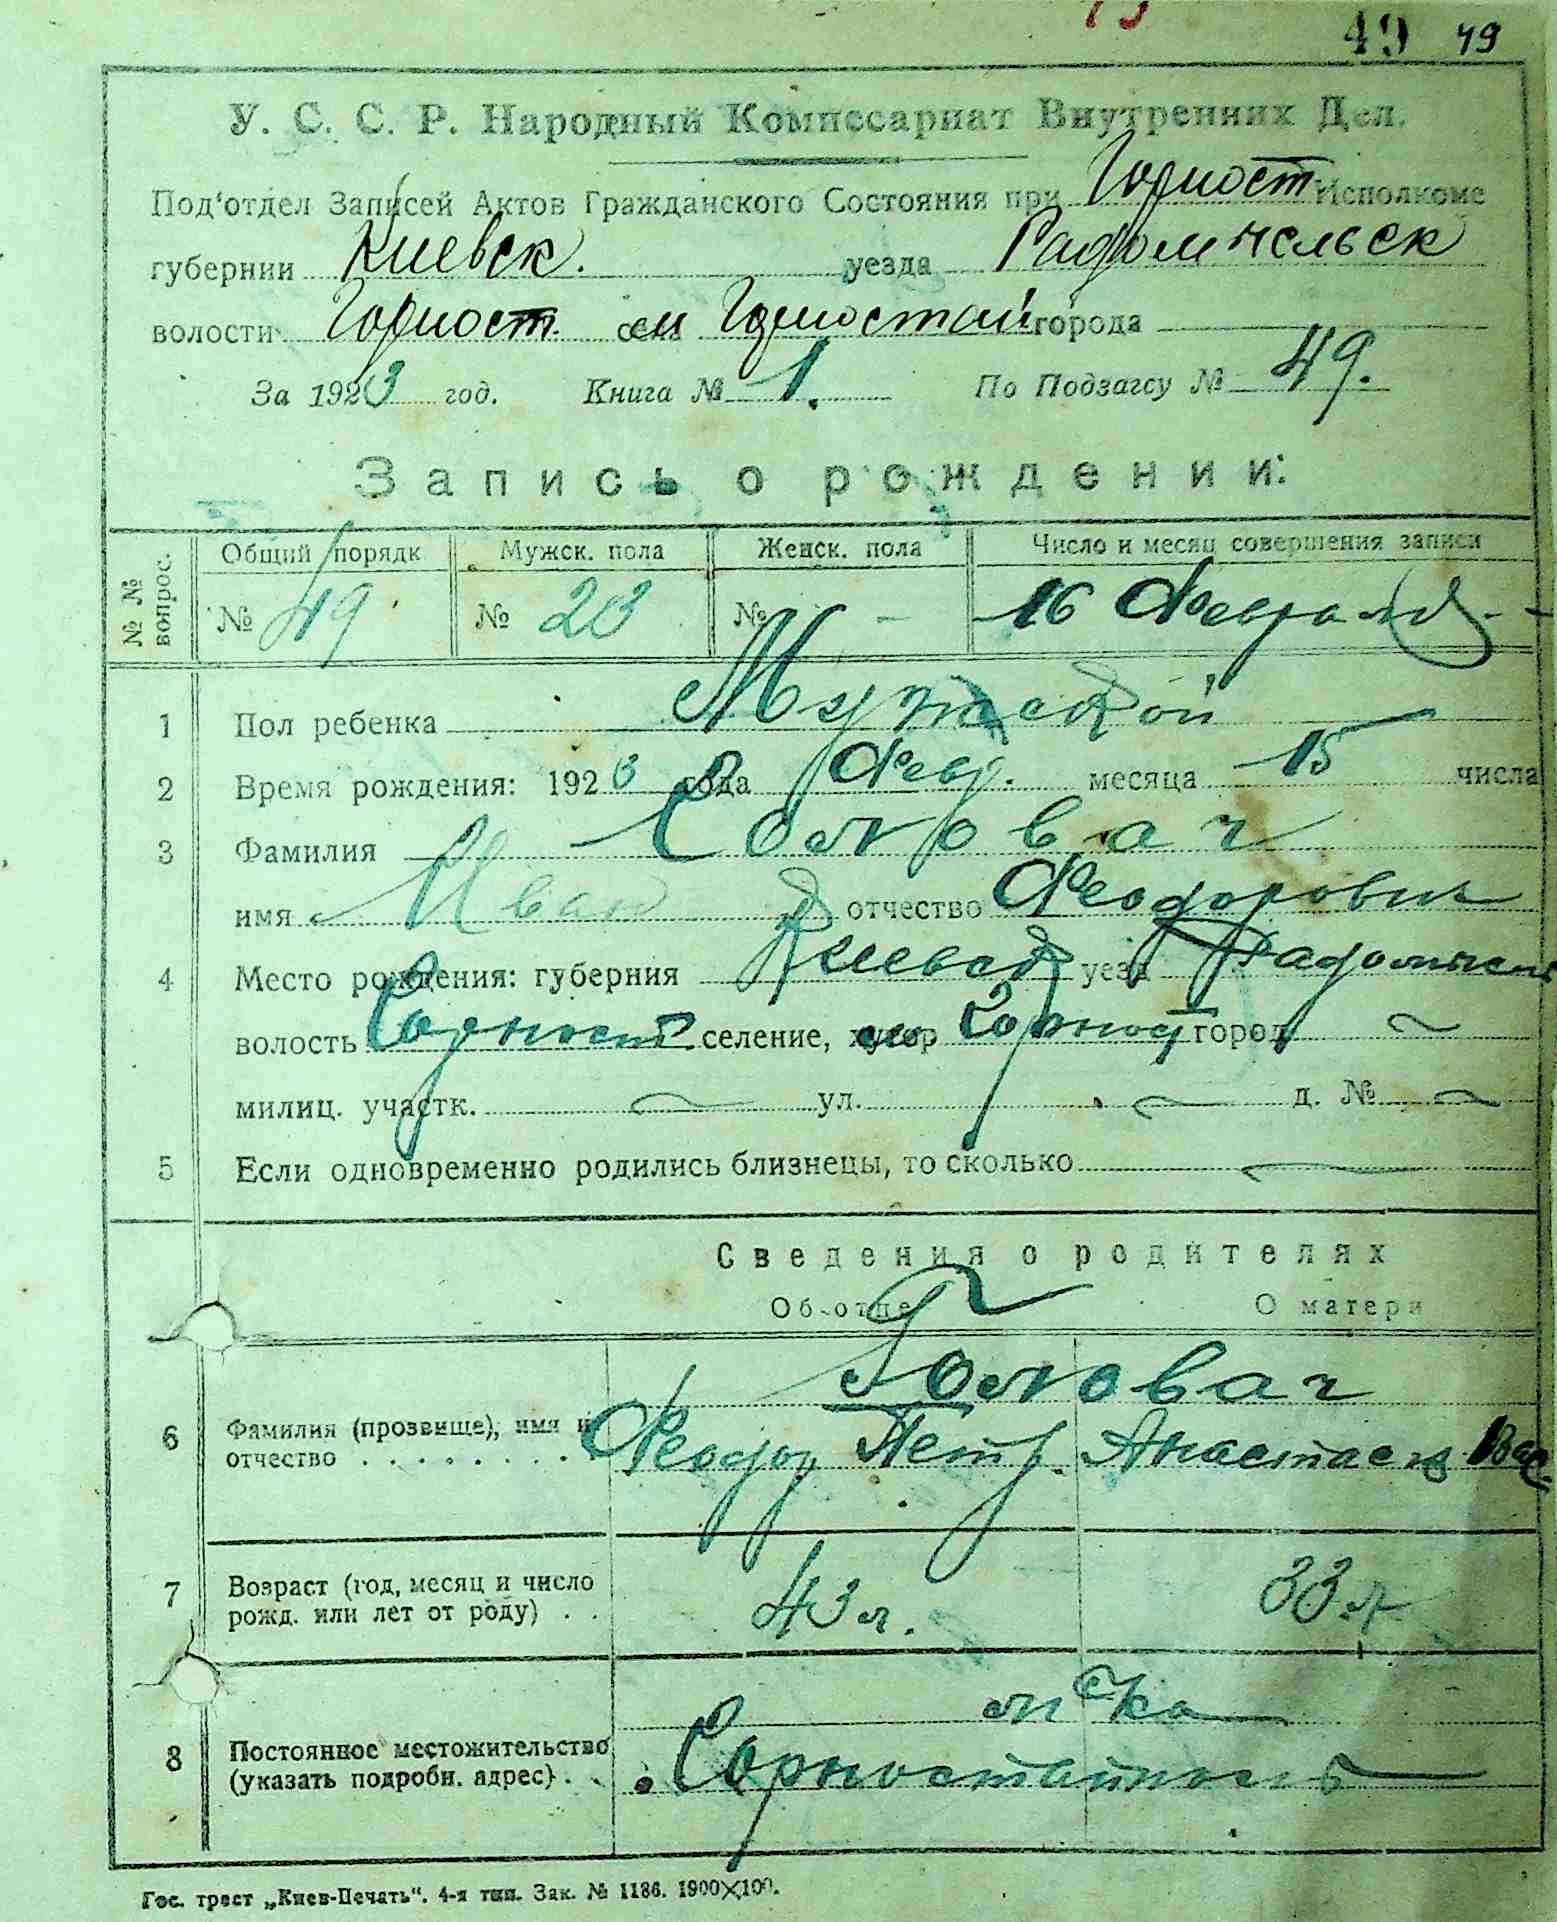 49 49
У. С. С. Р. Народный Комиссариат Внутренних Дел.
Под'отдел Записей Актов Гражданского Состояния при Горност Исполкоме
губернии Киевск. уезда Радомысльск
волости Горност. села Горностай города
За 1923 год. Книга № 1. По Подзагсу № 49.
Запись о рождении:
№ № вопрос. Общий порядк Мужск. пола Женск. пола Число и месяц совершения записи
№ 49 № 23 № - 16 Февраля
1 Пол ребенка Мужской
2 Время рождения: 1923 года Февр. месяца 15 числа
3 Фамилия Головач
имя Иван отчество Феодорович
4 Место рождения: губерния Киевск уезд Радомысль
волость Горност. селение, хутор Горност город
милиц. участк. ул. д. №
5 Если одновременно родились близнецы, то сколько
Сведения о родителях
Об отце О матери
Головач
6 Фамилия (прозвище), имя и отчество Феодор Петр. Анастасия Вас.
7 Возраст (год, месяц и число рожд. или лет от роду) 43 л. 33 л.
м-ко
8 Постоянное местожительство (указать подробн. адрес) Горностайполь
Гос. трест „Киев-Печать“. 4-я тип. Зак. № 1186. 1900×100.